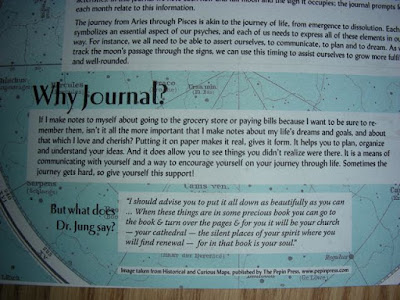 each month relate to this information.
The journey from Aries through Pisces is akin to the journey of life, from emergence to dissolution. Each
symbolizes an essential aspect of our psyches, and each of us needs to express all of these elements in ou
way. For instance, we all need to be able to assert ourselves, to communicate, to plan and to dream. As w
track the moon's passage through the signs, we can use this timing to assist ourselves to grow more fulfil
and well-rounded.
Why Journal?
If I make notes to myself about going to the grocery store or paying bills because I want to be sure to re-
member them, isn't it all the more important that I make notes about my life's dreams and goals, and about
that which I love and cherish? Putting it on paper makes it real, gives it form. It helps you to plan, organize
and understand your ideas. And it does allow you to see things you didn't realize were there. It is a means of
communicating with yourself and a way to encourage yourself on your journey through life. Sometimes the
journey gets hard, so give yourself this support!
But what does
Dr. Jung say?
"I should advise you to put it all down as beautifully as you can
... When these things are in some precious book you can go to
the book & turn over the pages & for you it will be your church
— your cathedral — the silent places of your spirit where you
will find renewal — for in that book is your soul."
Image taken from Historical and Curious Maps, published by The Pepin Press, www.pepinpress.com